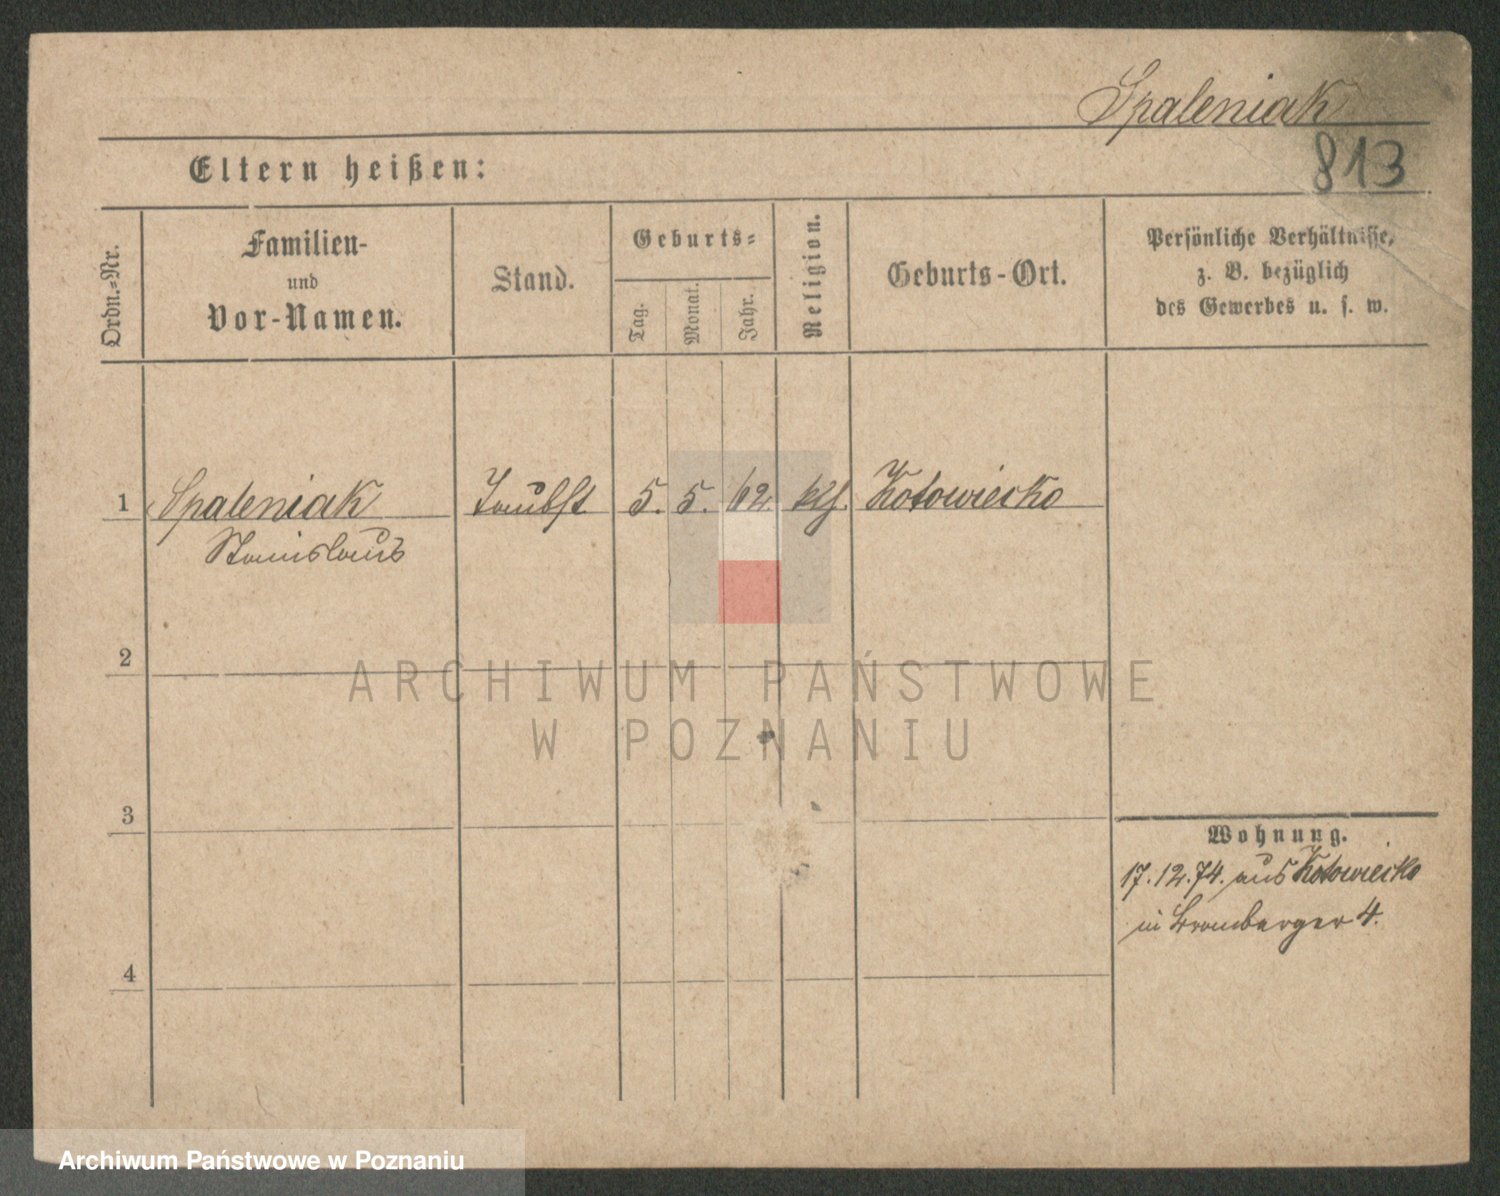 Spaleniak
813
Eltern heißen:
Ordn.-Nr.
Familien-
und
Vor-Namen.
Stand.
Geburts-
Tag.
Monat.
Jahr.
Religion.
Geburts-Ort.
Persönliche Verhältnisse,
z. B. bezüglich
des Gewerbes u. s. w.
1 Spaleniak Taubst 5. 5. 62 Kotowiecko
Stanislaus
2
ARCHIWUM PAŃSTWOWE
W POZNANIU
3
Wohnung.
17.12.74. aus Kotowiecko
in Bromberger 4.
4
Archiwum Państwowe w Poznaniu